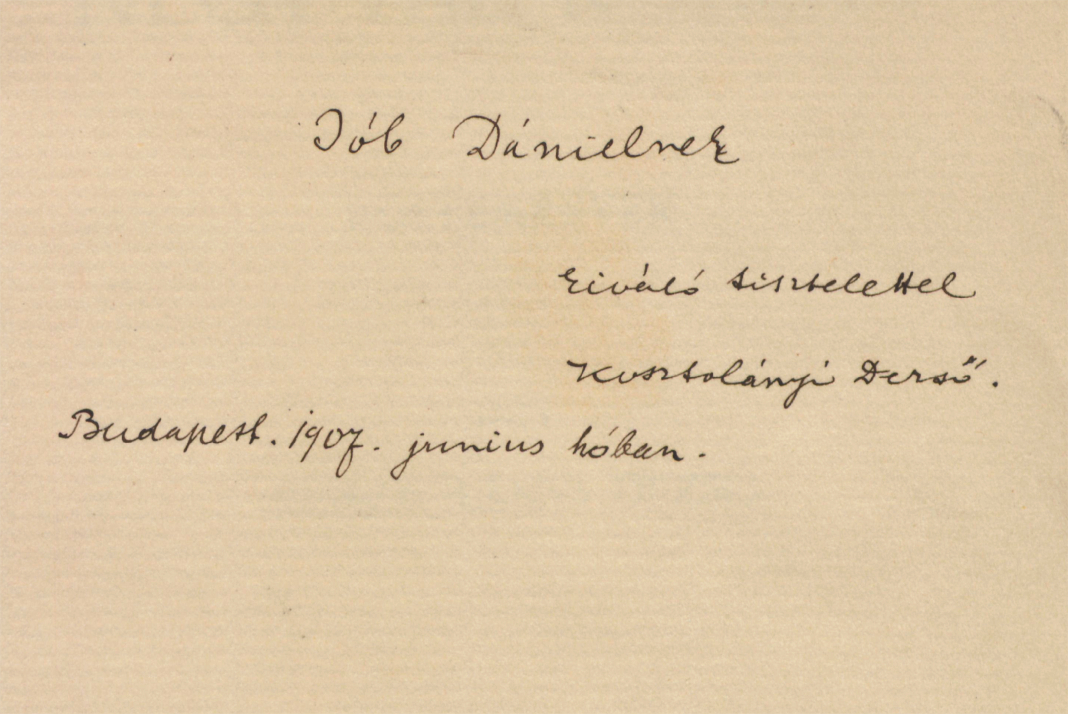 Jób Dánielnek
kiváló tisztelettel
Kosztolányi Dezső.
Budapest. 1907. junius hóban.